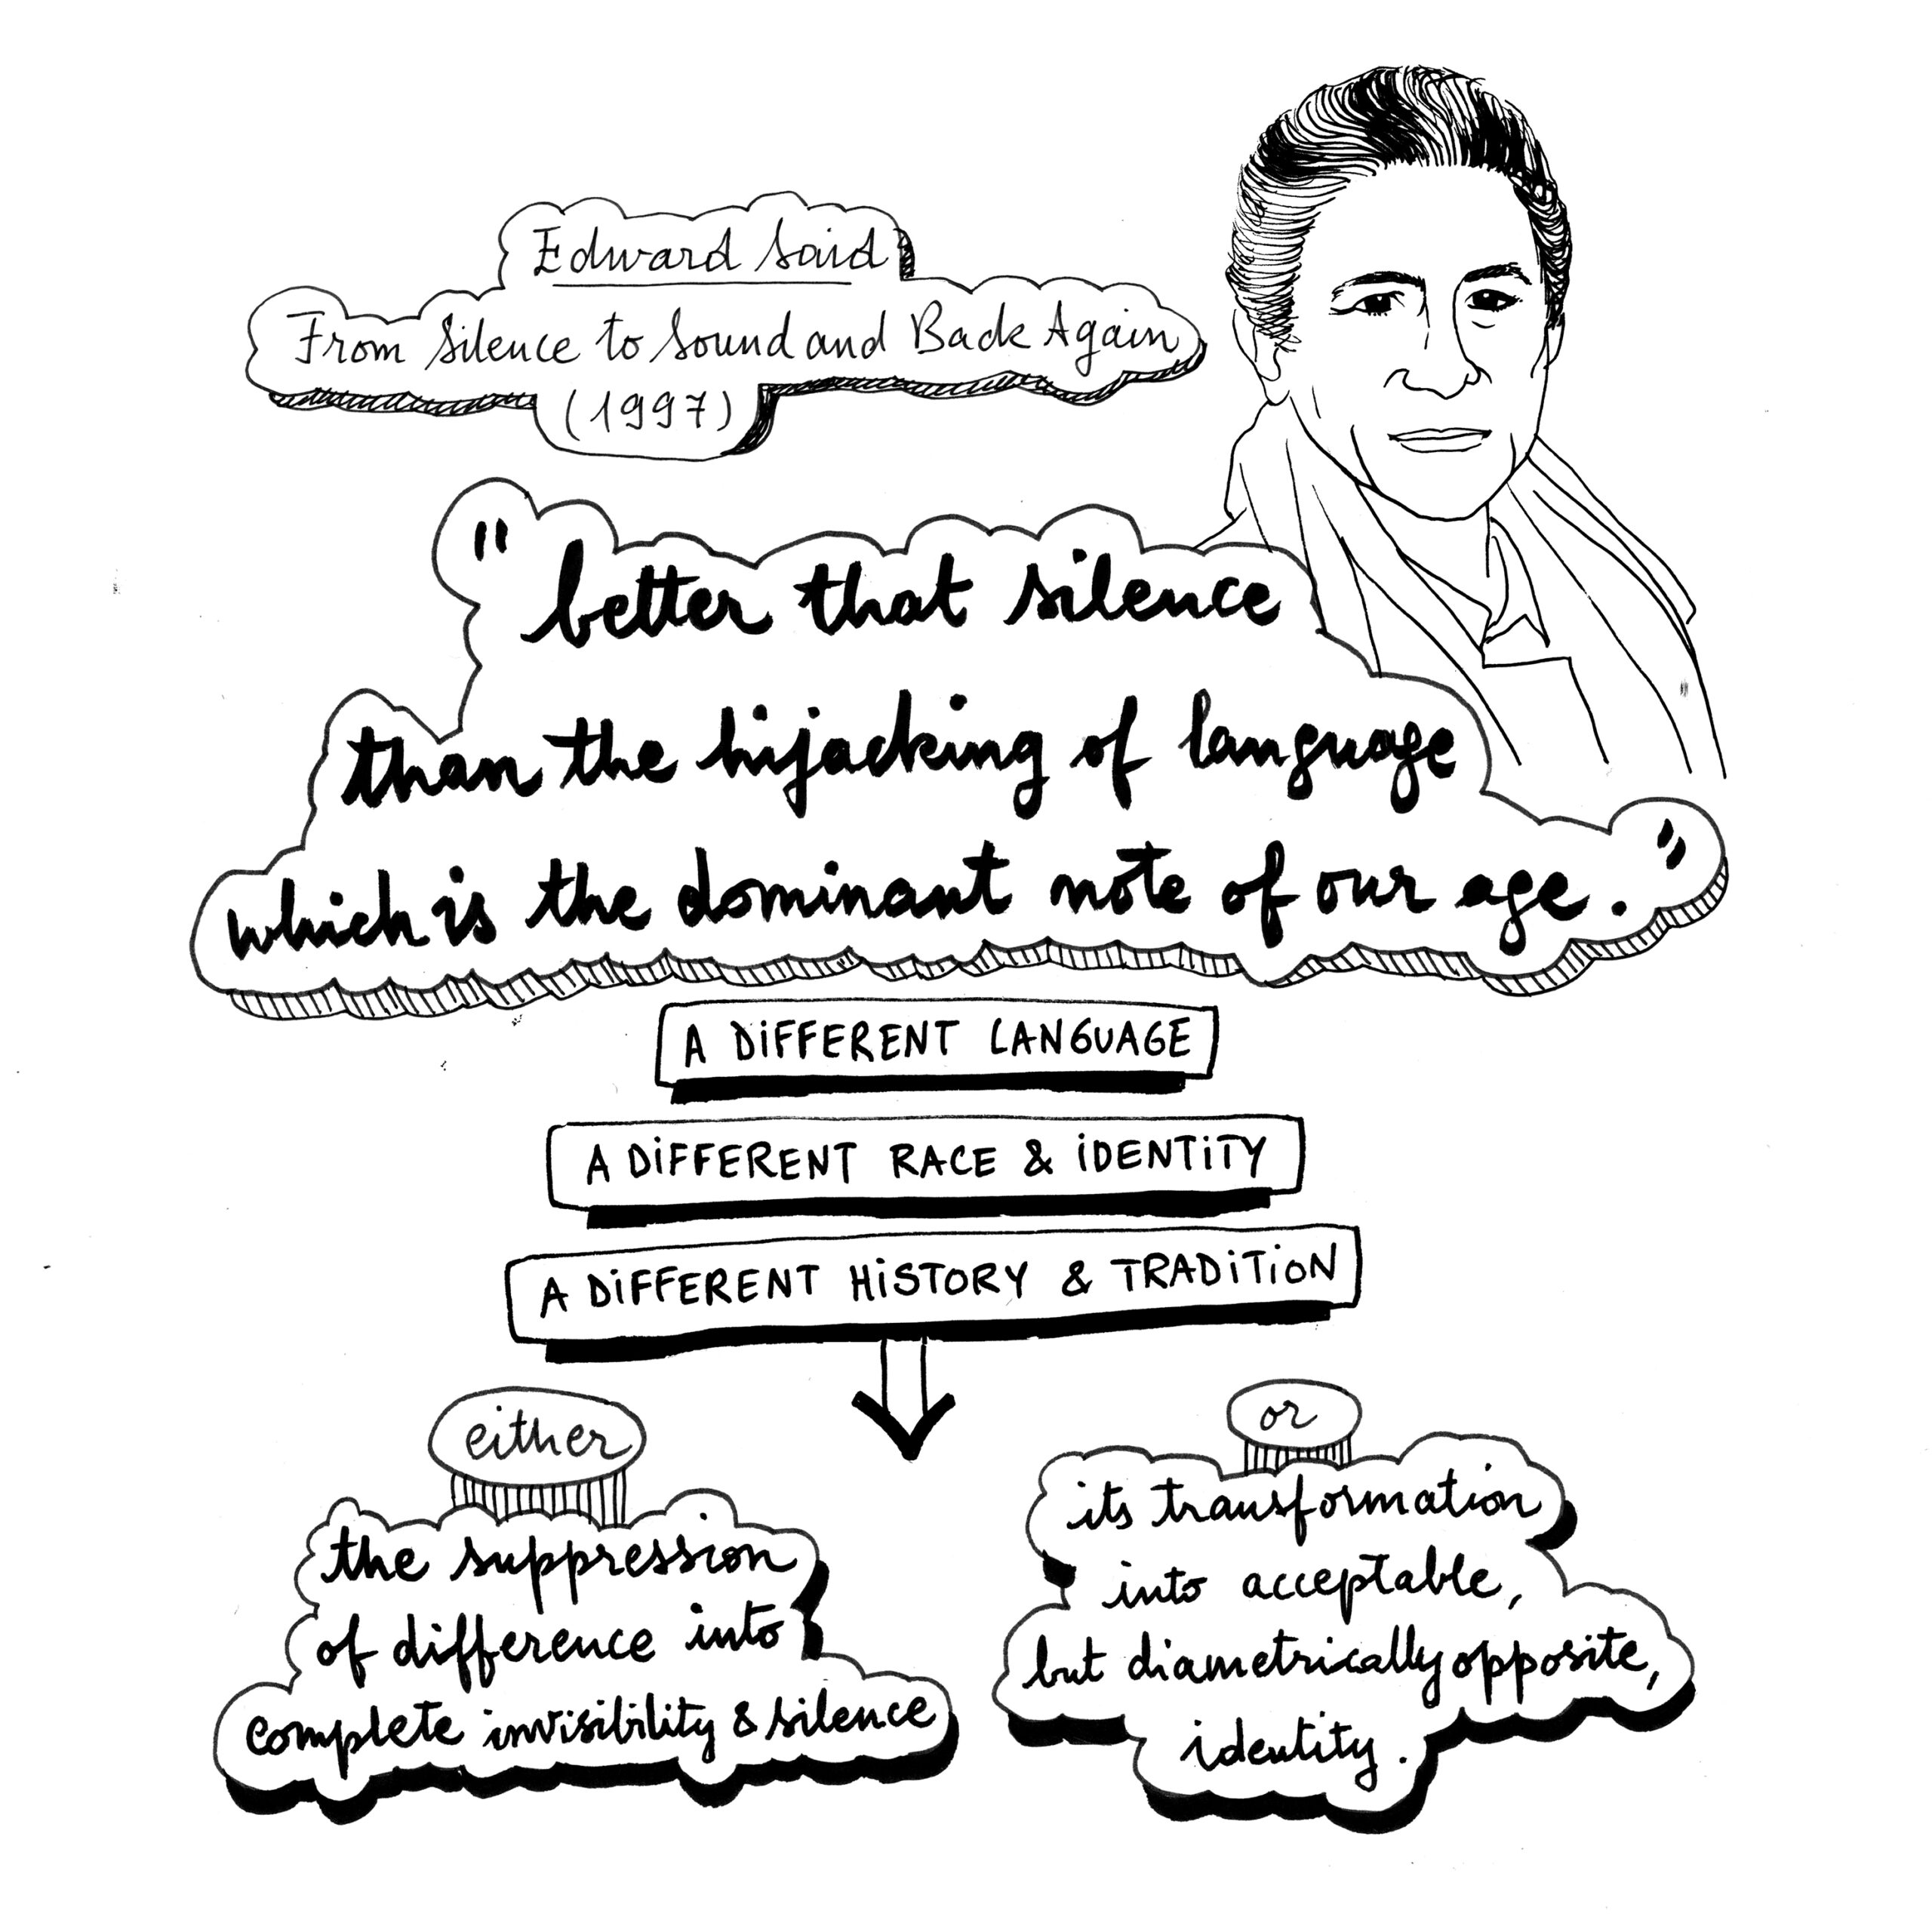 Edward Said
From Silence to Sound and Back Again
(1997)
" better that silence
than the hijacking of language
which is the dominant note of our age. "
A DiFFERENT LANGUAGE
A DiFFERENT RACE & iDENTiTY
A DiFFERENT HiSTORY & TRADiTiON
either
the suppression
of difference into
complete invisibility & silence
or
its transformation
into acceptable,
but diametrically opposite,
identity.